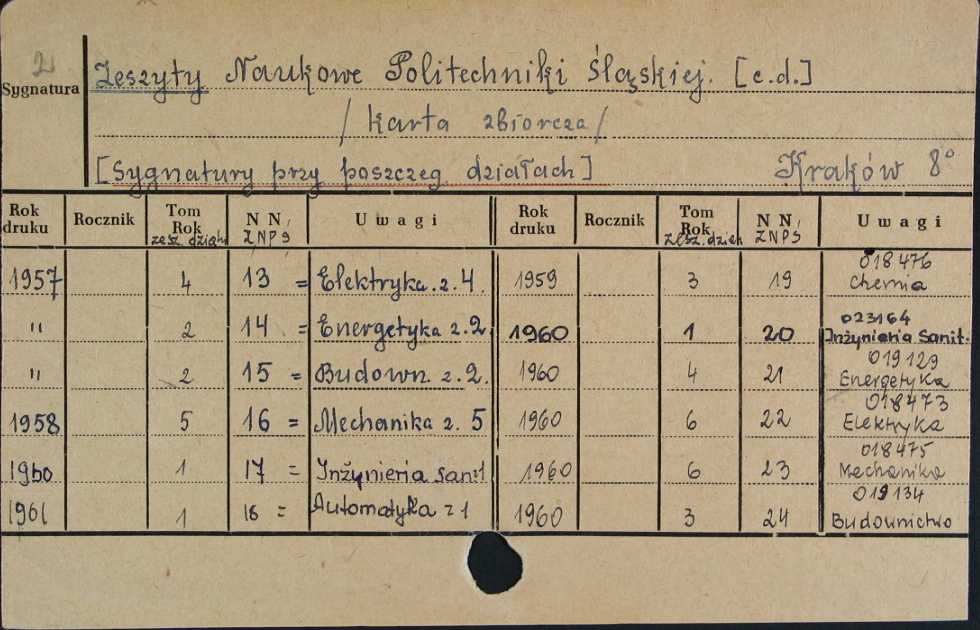 2
Sygnatura
Zeszyty Naukowe Politechniki Śląskiej. [c.d.]
/karta zbiorcza/
[Sygnatury przy poszczeg. działach] Kraków 8°
Rok druku Rocznik Tom Rok zesz. dział N N, ZNPS Uwagi Rok druku Rocznik Tom Rok zesz. dział N N, ZNPS Uwagi
1957 4 13 = Elektryka. z. 4. 1959 3 19 018476 Chemia
" 2 14 = Energetyka z. 2. 1960 1 20 023164 Inżynieria Sanit.
" 2 15 = Budown. z. 2. 1960 4 21 019129 Energetyka
1958 5 16 = Mechanika z. 5 1960 6 22 018473 Elektryka
1960 1 17 = Inżynieria sanit 1960 6 23 018475 Mechanika
1961 1 18 = Automatyka z 1 1960 3 24 019134 Budownictwo